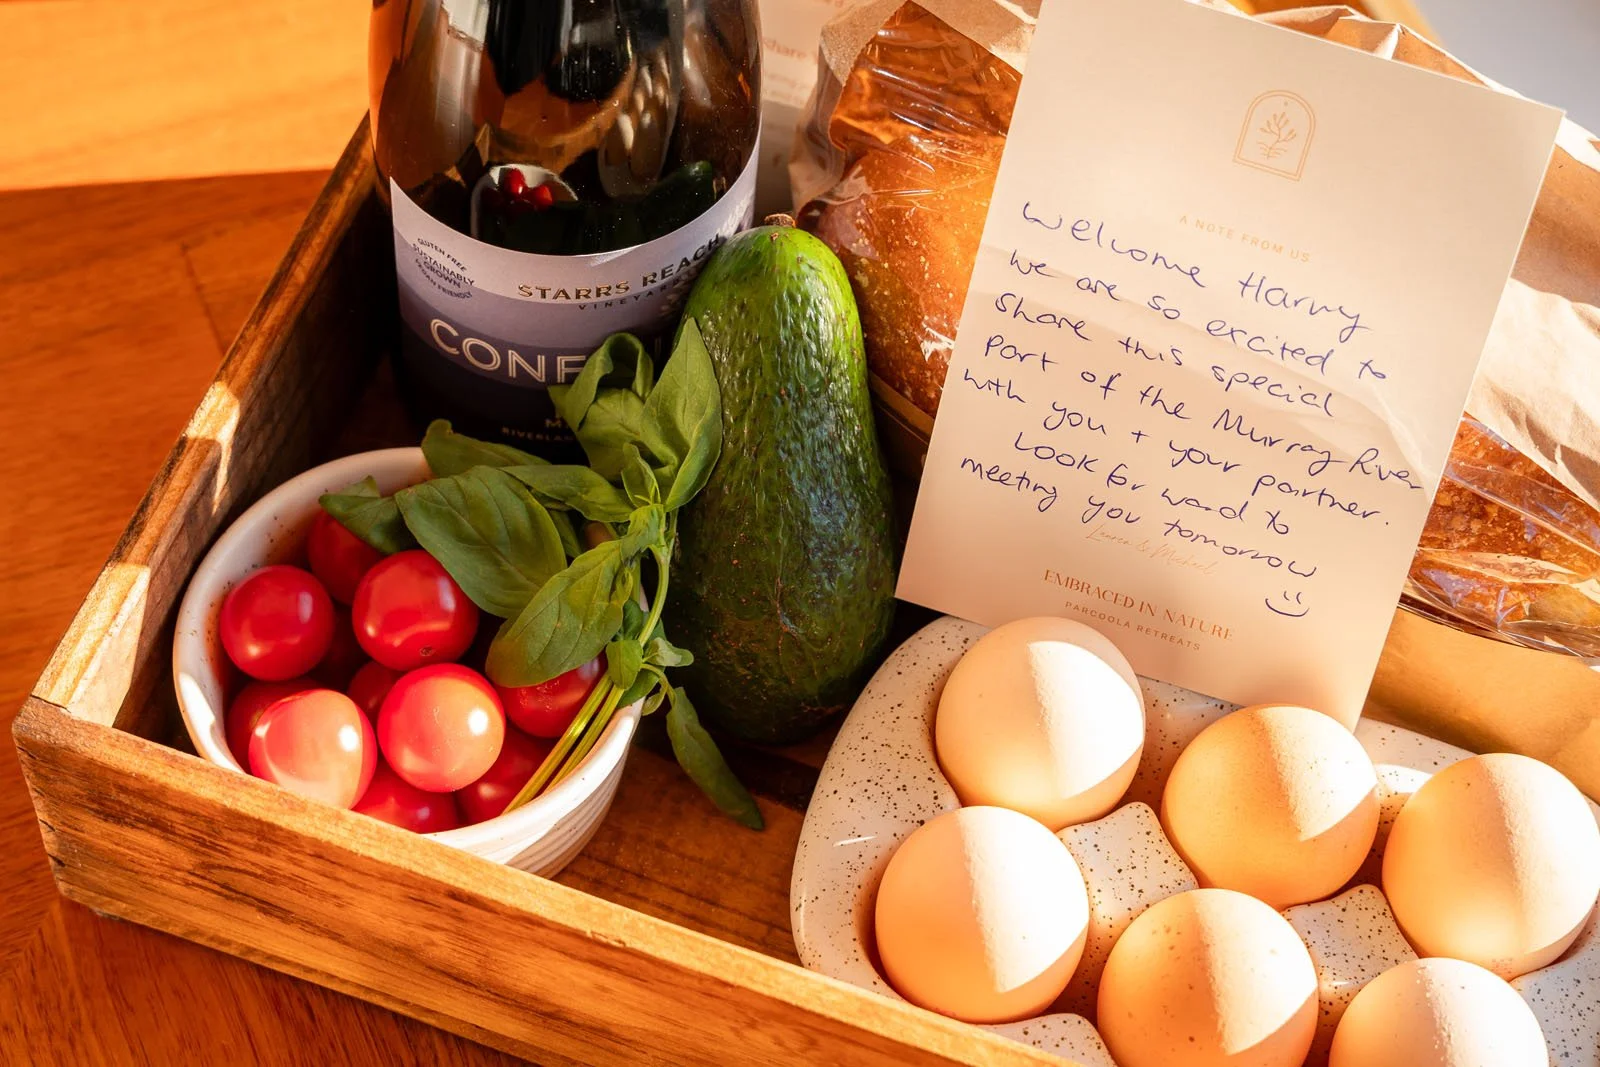 GLUTEN FREE
SUSTAINABLY
GROWN
VEGAN FRIENDLY
STARRS REACH
VINEYARD
CONF
RIVERLAN
share
A NOTE FROM US
Welcome Harvy
We are so excited to
share this special
part of the Murray River
with you + your partner.
Look forward to
meeting you tomorrow
Lauren & Michael
EMBRACED IN NATURE
PARCOOLA RETREATS